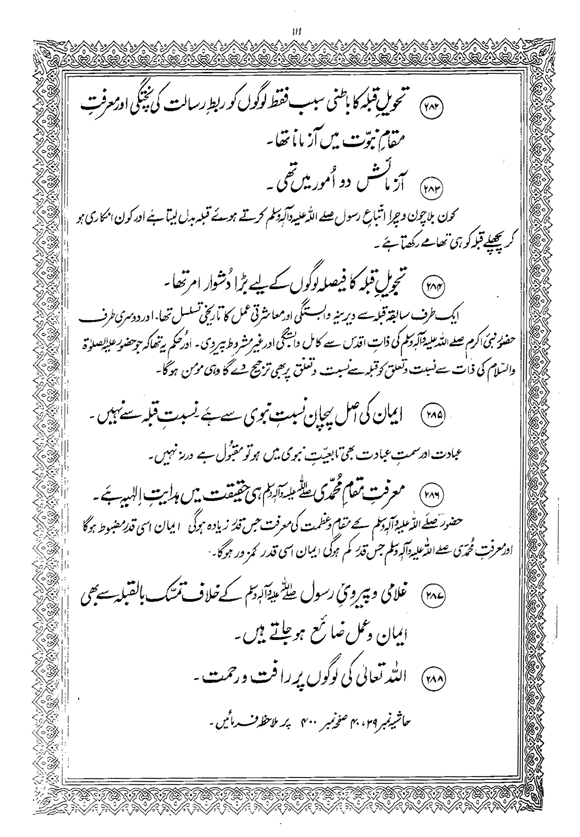 ۱۱۱
۲۸۲ تحویلِ قبلہ کا باطنی سبب فقط لوگوں کو ربطِ رسالت کی پختگی اور معرفتِ
مقامِ نبوّت میں آزمانا تھا۔
۲۸۳ آزمائش دو اُمور میں تھی۔
کون بلا چون و چرا اتباعِ رسول صلے اللہ علیہ وآلہٖ وسلم کرتے ہوئے قبلہ بدل لیتا ہے اور کون انکاری ہو
کر پچھلے قبلہ کو ہی تھامے رکھتا ہے۔
۲۸۴ تحویلِ قبلہ کا فیصلہ لوگوں کے لیے بڑا دشوار امر تھا۔
ایک طرف سابقہ قبلہ سے دیرینہ وابستگی اور معاشرتی عمل کا تاریخی تسلسل تھا، اور دوسری طرف
حضور نبی اکرم صلے اللہ علیہ وآلہٖ وسلم کی ذاتِ اقدس سے کامل وابستگی اور غیر مشروط پیروی۔ اور حکم یہ تھا کہ جو حضور علیہ الصلوٰۃ
والسلام کی ذات سے نسبت و تعلق کو قبلہ سے نسبت و تعلق پر بھی ترجیح دے گا وہی مؤمن ہوگا۔
۲۸۵ ایمان کی اصل پہچان نسبتِ نبوی سے ہے نسبتِ قبلہ سے نہیں۔
عبادت اور سمتِ عبادت بھی تابعیّتِ نبوی میں ہو تو مقبُول ہے ورنہ نہیں۔
۲۸۶ معرفتِ مقامِ مُحمّدی صلی اللہ علیہ وآلہٖ وسلم ہی حقیقت میں ہدایتِ الٰہیہ ہے۔
حضور صلے اللہ علیہ وآلہٖ وسلم کے مقام و عظمت کی معرفت جس قدر زیادہ ہوگی ایمان اسی قدر مضبوط ہوگا
اور معرفتِ مُحمّدی صلے اللہ علیہ وآلہٖ وسلم جس قدر کم ہوگی ایمان اسی قدر کمزور ہوگا۔
۲۸۷ غلامی و پیرویِ رسول صلی اللہ علیہ وآلہٖ وسلم کے خلاف تمسّک بالقبلہ سے بھی
ایمان و عمل ضائع ہو جاتے ہیں۔
۲۸۸ اللہ تعالیٰ کی لوگوں پر رافت و رحمت۔
حاشیہ نمبر ۳۹، ۴۰ صفحہ نمبر ۴۰۰ پر ملاحظہ فرمائیں۔